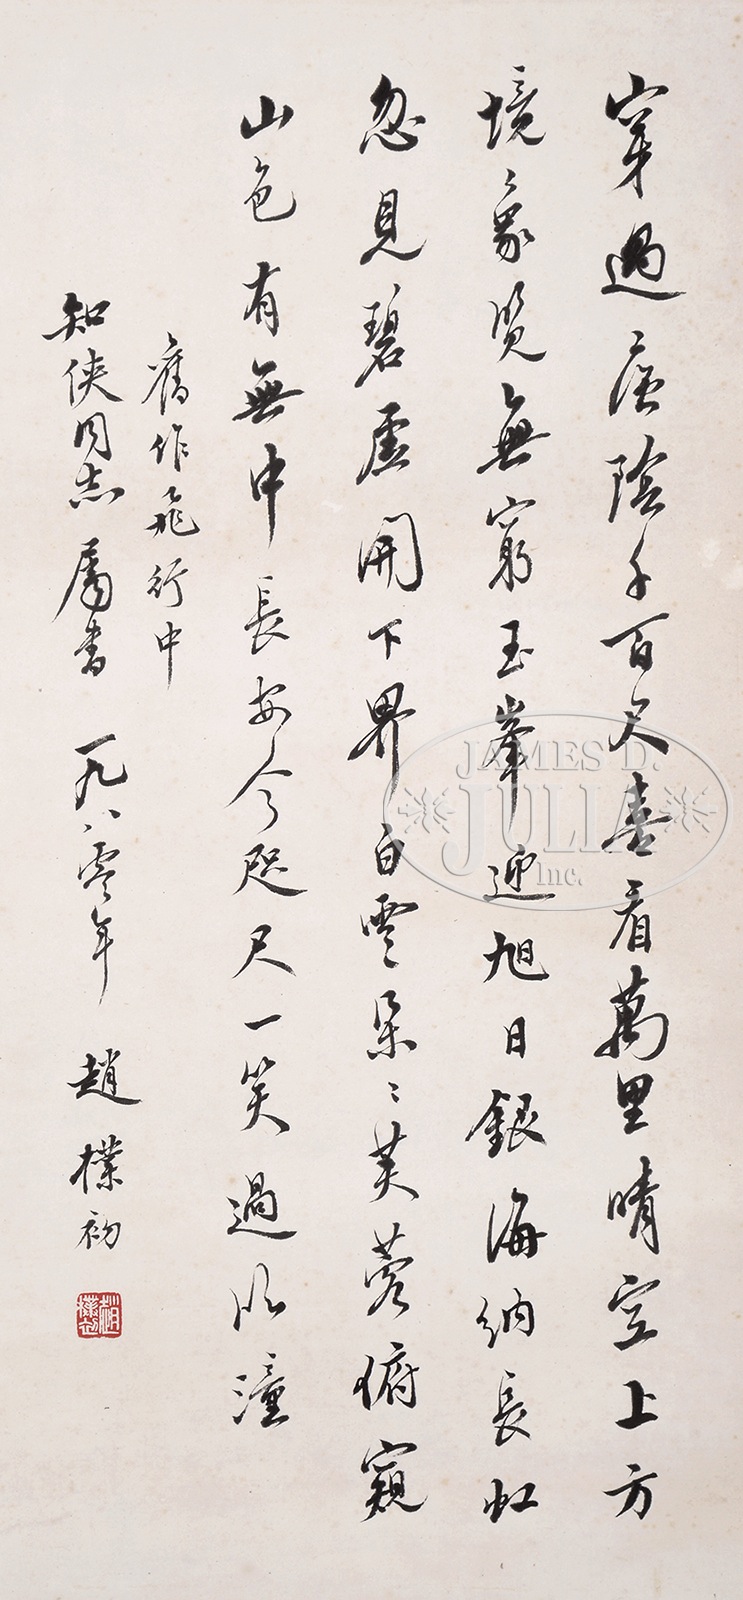 穿過層陰千百尺喜看萬里晴空上方
境象覽無窮玉峯迎旭日銀海納長虹
忽見碧虛開下界白雲朵〻芙蓉俯窺
山色有無中長安今咫尺一笑過臨潼
舊作飛行中
知俠同志屬書 一九八零年 趙樸初
趙樸初
JAMES D.
JULIA
Inc.